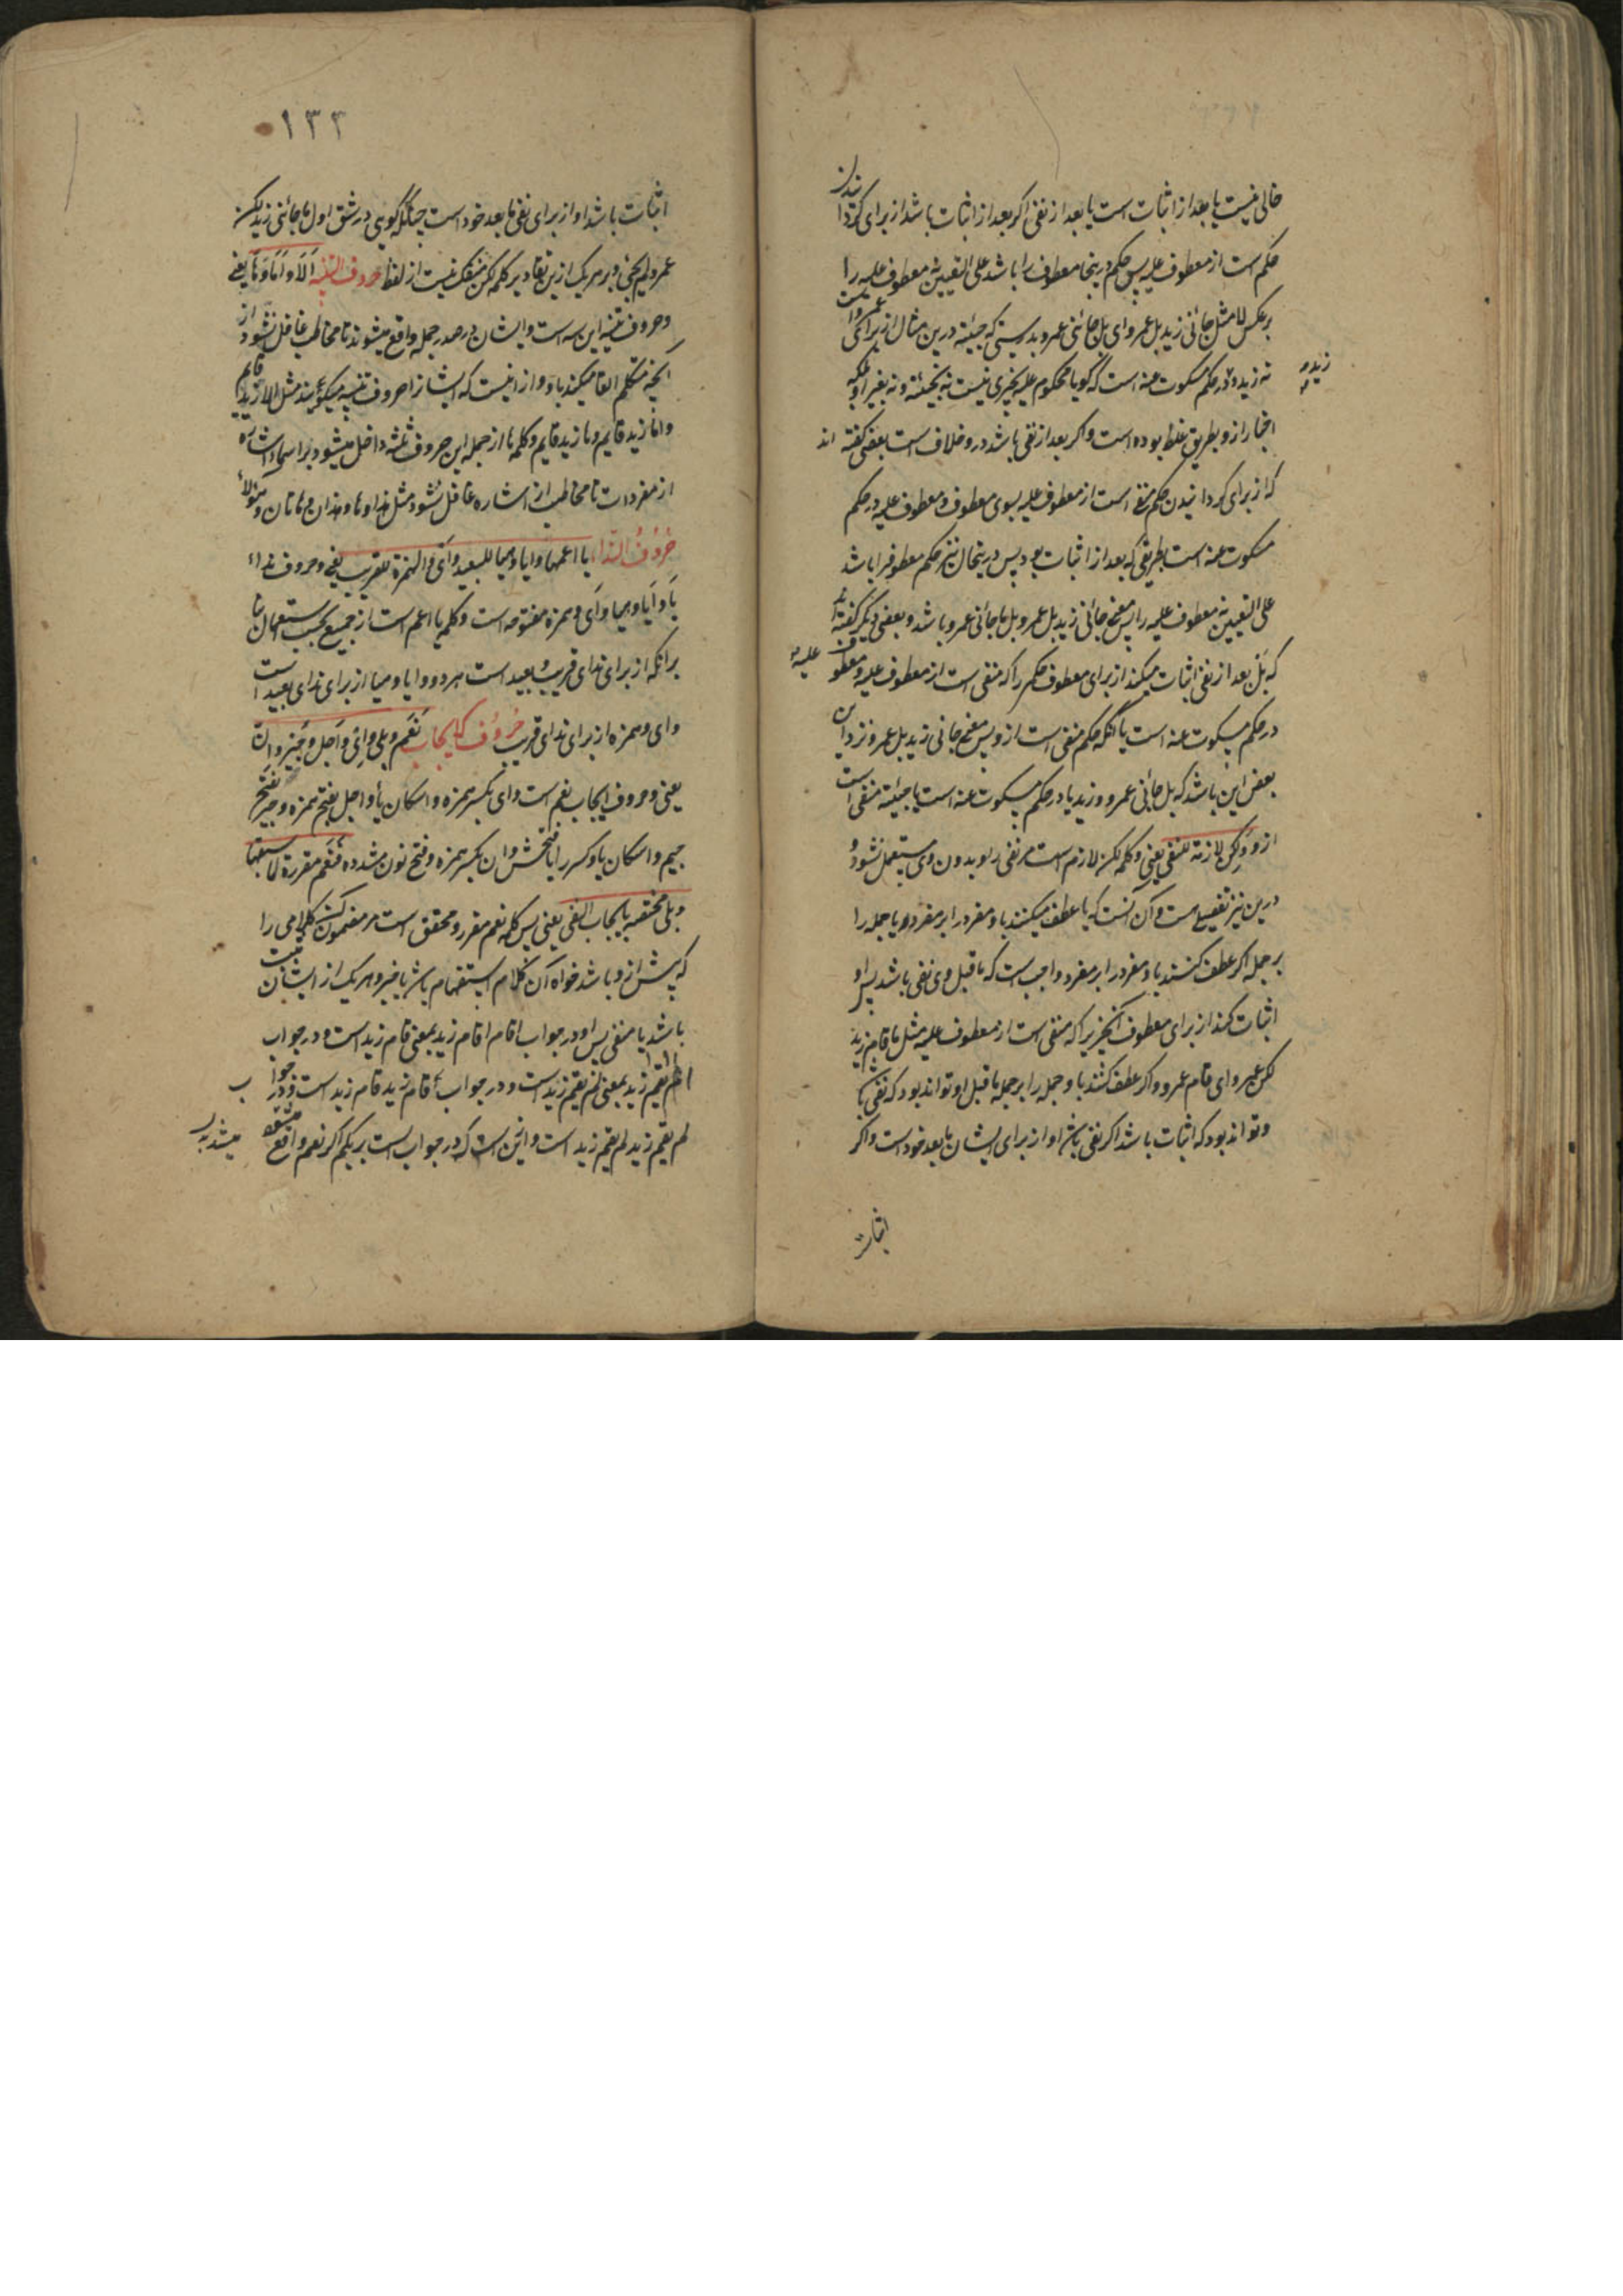 خالی نیست یا بعد از اثبات است یا بعد از نفی اکر بعد از اثبات باشد از برای کردانیدن
حکم است از معطوف علیه پس حکم درینجا معطوف را باشد علی التعیین نه معطوف علیه را
بر عکس لا مثل جائنی زید بل عمرو ای بل جائنی عمرو بدرستی که جیئة درین مثال از برای عمرو است
نه زید و زید در حکم مسکوت عنه است که کویا محکوم علیه بچیزی نیست نه بجیئة و نه بغیر او بلکه
اخبار ازو بطریق غلط بوده است و اکر بعد از نفی باشد درو خلاف است بعضی کفته اند
که از برای کردانیدن حکم منفی است از معطوف علیه بسوی معطوف و معطوف علیه در حکم
مسکوت عنه است بطریقی که بعد از اثبات بود پس درینحال نیز حکم معطوف را باشد
علی التعیین نه معطوف علیه را پس معنی جائنی زید بل عمرو بل ما جائنی عمرو باشد و بعضی دیکر کفته اند
که بل بعد از نفی اثبات میکند از برای معطوف حکم را که منفی است از معطوف علیه و معطوف علیه
در حکم مسکوت عنه است یا آنکه حکم منفی است ازو پس معنی جائنی زید بل عمرو نزد این
بعض این باشد که بل جائنی عمرو و زید یا در حکم مسکوت عنه است یا جیئة منفی است
ازو ولکن لازمة للنفی یعنی و کلمه لکن لازم است مر نفی را و بدون وی مستعمل نشود و
درین نیز تفصیل است و آن آنست که یا عطف میکنند باو مفرد را بر مفرد و یا جمله را
بر جمله اکر عطف کنند باو مفرد را بر مفرد واجب است که ما قبل وی نفی باشد پس او
اثبات کند از برای معطوف آنچیزیرا که منفی است از معطوف علیه مثل ما قام زید
لکن عمرو ای قام عمرو و اکر عطف کنند باو جمله را بر جمله ما قبل او تواند بود که نفی باشد
و تواند بود که اثبات باشد اکر نفی باشد او از برای ایشان ما بعد خود است و اکر
اثبات
۱۳۳
اثبات باشد او از برای نفی ما بعد خود است چنانکه کویی در شق اول ما جائنی زید لکن
عمرو لم یجئ و بر هر یک ازین تقادیر کلمه لکن منفک نیست از لفظ حروف التنبیه الا و اما و ها یعنی
و حروف تنبیه این سه است و ایشان در صدر جمله واقع میشوند تا مخاطب غافل نشود از
آنچه متکلم القا میکند باو و ازاینست که ایشانرا حروف تنبیه میکویند مثل الا زید قایم
و اما زید قایم و ها زید قایم و کلمه ها از جمله این حروف ثلثه داخل میشود بر اسماء اشاره
از مفردات تا مخاطب از اشاره غافل نشود مثل هذا و هاتا و هذان و هاتان و هؤلاء
حروف النداء یا اعمها و ایا و هیا للبعید و ای و الهمزة للقریب یعنی و حروف نداء
یا و ایا و هیا و ای و همزه مفتوحه است و کلمه یا اعم است از جمیع بحسب استعمال بنا
برانکه از برای ندای قریب و بعید است هر دو و ایا و هیا از برای ندای بعید است
و ای و همزه از برای ندای قریب حروف الایجاب نعم و بلی و ای و اجل و جیر و ان
یعنی و حروف ایجاب نعم است و ای بکسر همزه و اسکان یا و اجل بفتح همزه و جیر بفتح
جیم و اسکان یا و کسر را یا فتحش و ان بکسر همزه و فتح نون مشدده فنعم مقررة لما سبقها
و بلی مختصة بایجاب النفی یعنی پس کلمه نعم مقرر و محقق است مر مضمون کلامی را
که پیش ازو باشد خواه آن کلام استفهام باشد یا خبر و هر یک از ایشان مثبت
باشد یا منفی پس او در جواب اقام زید بمعنی قام زید است و در جواب
الم یقم زید بمعنی لم یقم زید است و در جواب قام زید قام زید است و در جواب
لم یقم زید لم یقم زید است و این است که در جواب الست بربکم اکر نعم واقع میشد